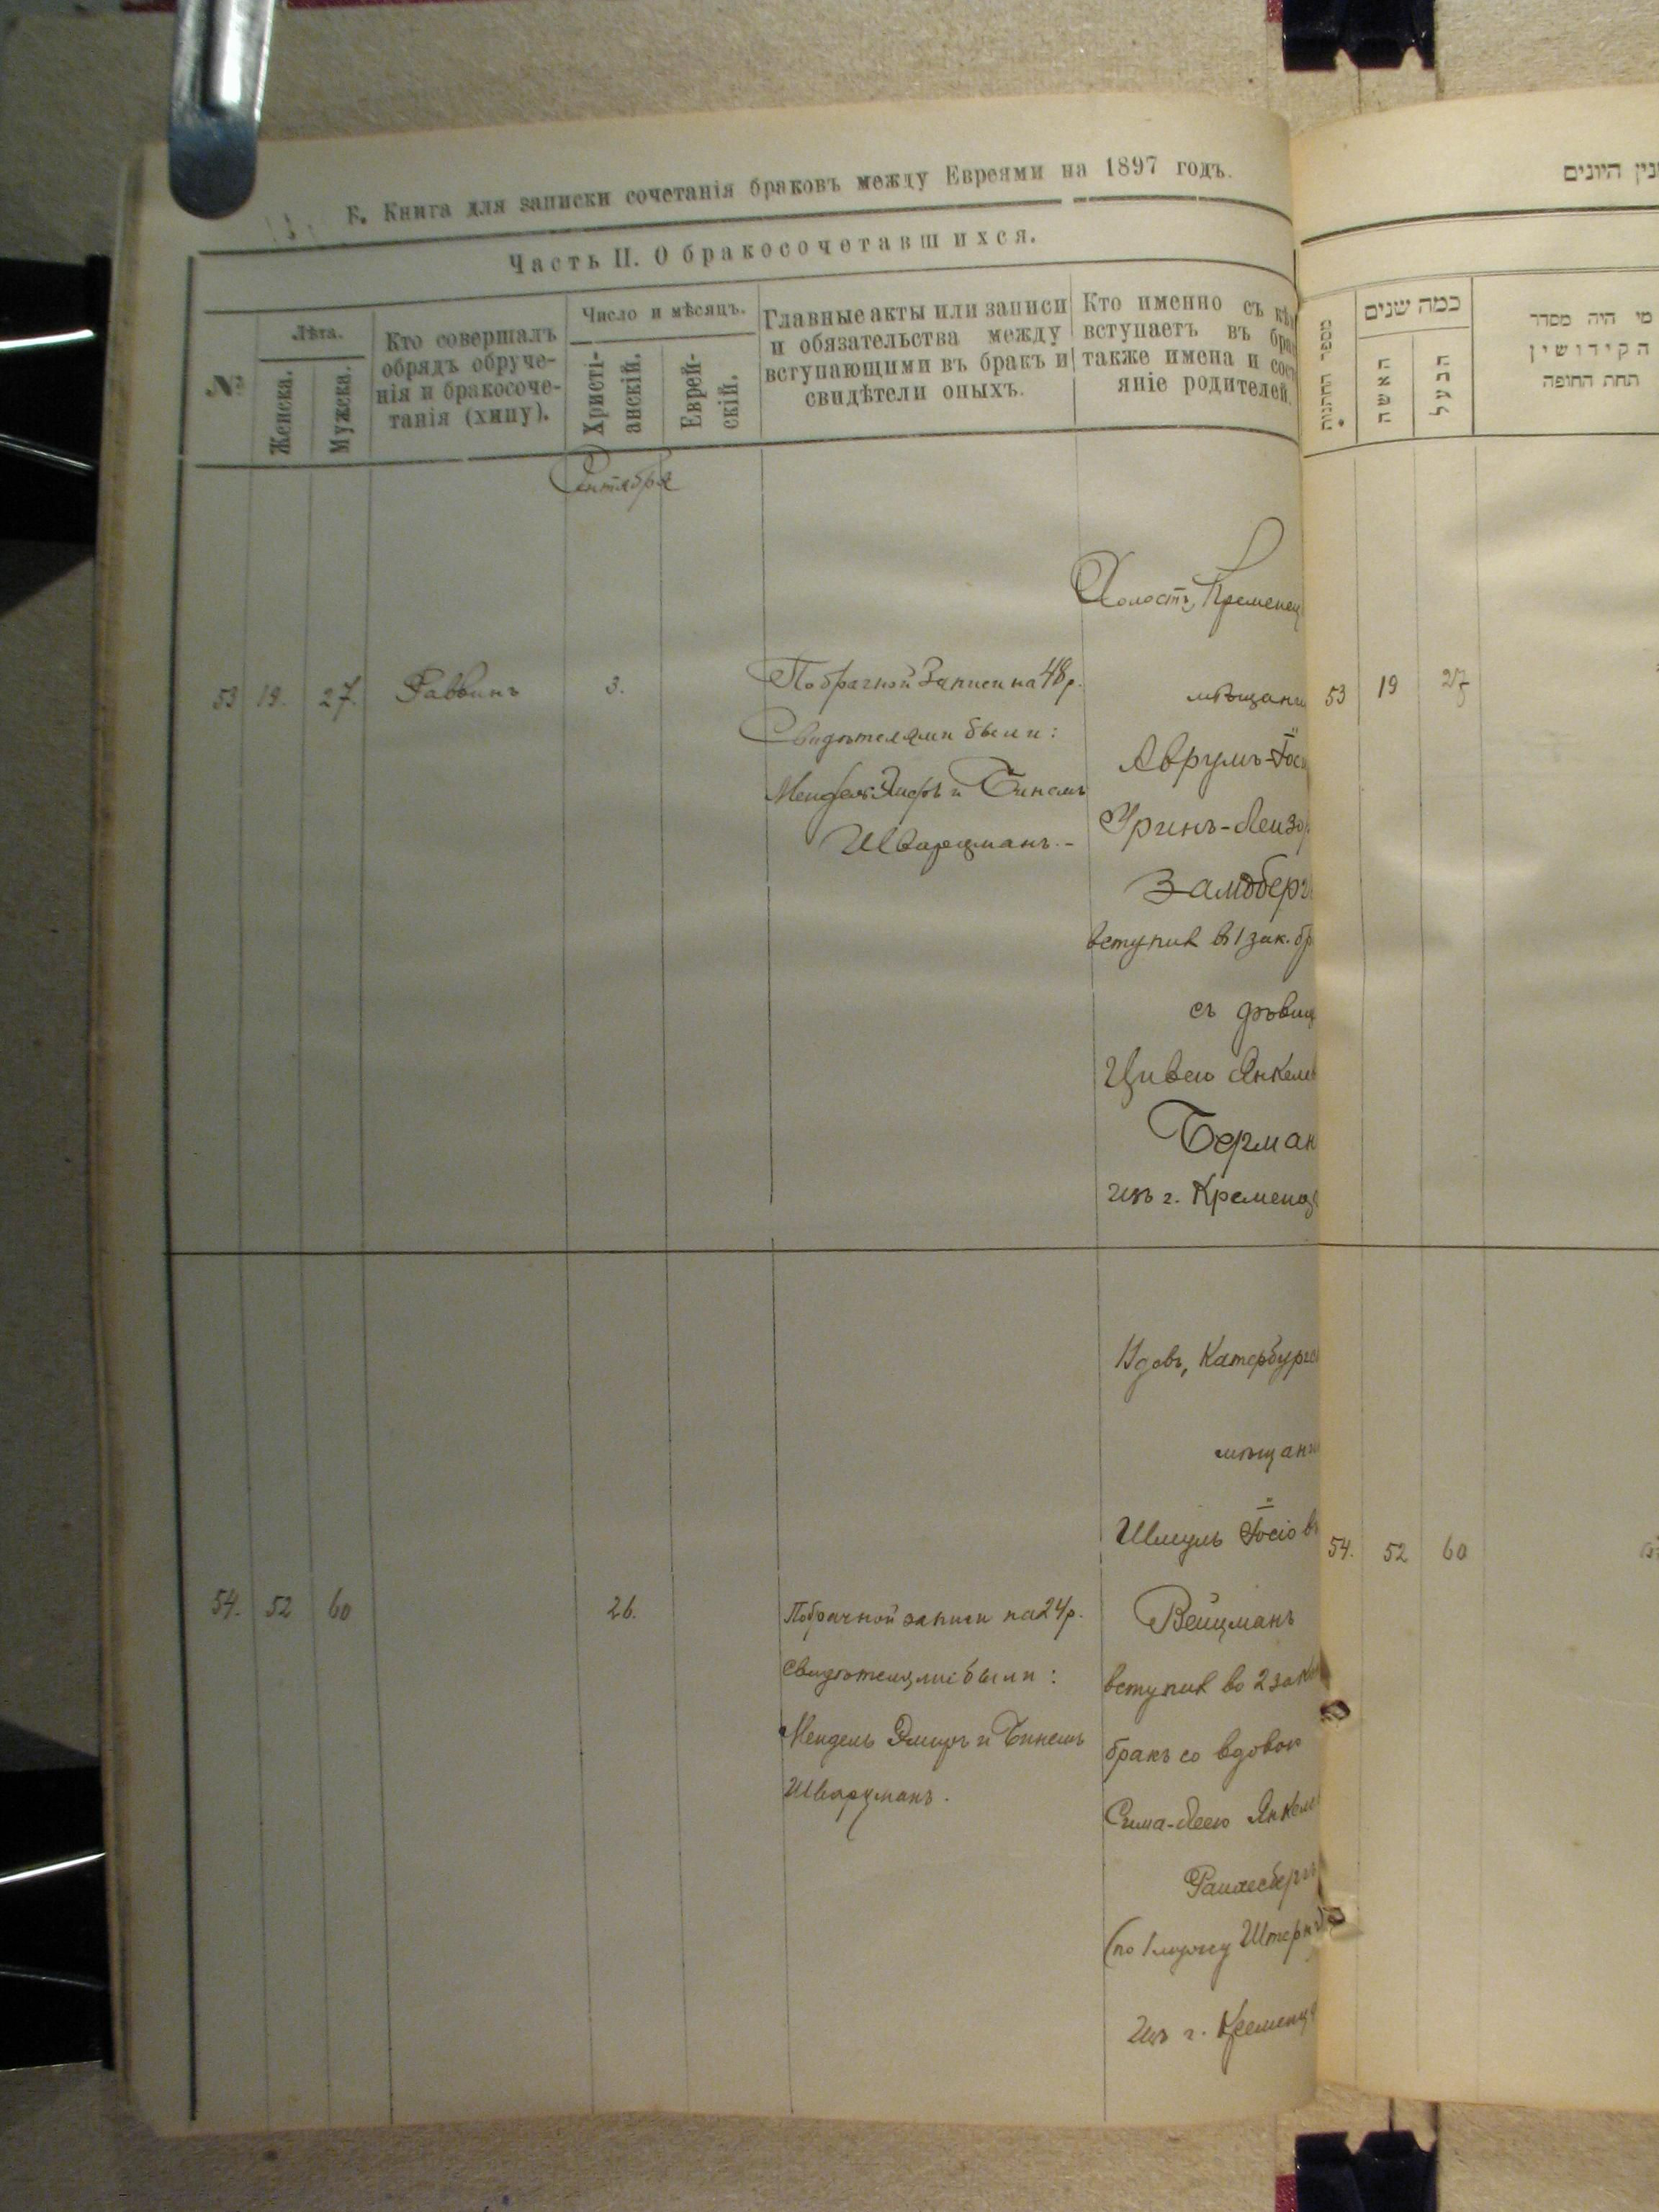 Б. Книга для записки сочетанія браковъ между Евреями на 1897 годъ.
Часть II. О бракосочетавшихся.
№
Лѣта.
Женска.
Мужска.
Кто совершалъ
обрядъ обруче-
нія и бракосоче-
танія (хипу).
Число и мѣсяцъ.
Христі-
анскій.
Еврей-
скій.
Главные акты или записи
и обязательства между
вступающими въ бракъ и
свидѣтели оныхъ.
Кто именно съ кѣм
вступаетъ въ бра
также имена и сост
яніе родителей.
Сентября
53 19. 27. Раввинъ 3.
По брачной Записи на 48 р.
Свидѣтелями были:
Мендель и Бинемъ
Шварцманъ.-
Холостъ, Кременец
мѣщани
Аврумъ-Іос
Гринъ-Лейзо
Замдберг
вступил в 1 зак. бр
съ дѣвиц
Цивею Янкеле
Берман
изъ г. Кременц
54. 52 60 26.
По брачной записи на 24 р.
Свидѣтелями были:
Мендель и Бинемъ
Шварцманъ.
Вдовъ, Катербургс
мѣщани
Шмуль Іосіовъ
Вейцманъ
вступил во 2 зак
бракъ со вдовою
Сима-Леею Янкеле
(по 1 мужу Штернъ)
изъ г. Кременц
נין היונים
מספר החתנות
כמה שנים
האשה
הבעל
מי היה מסדר
הקידושין
תחת החופה
53 19 27
54. 52 60